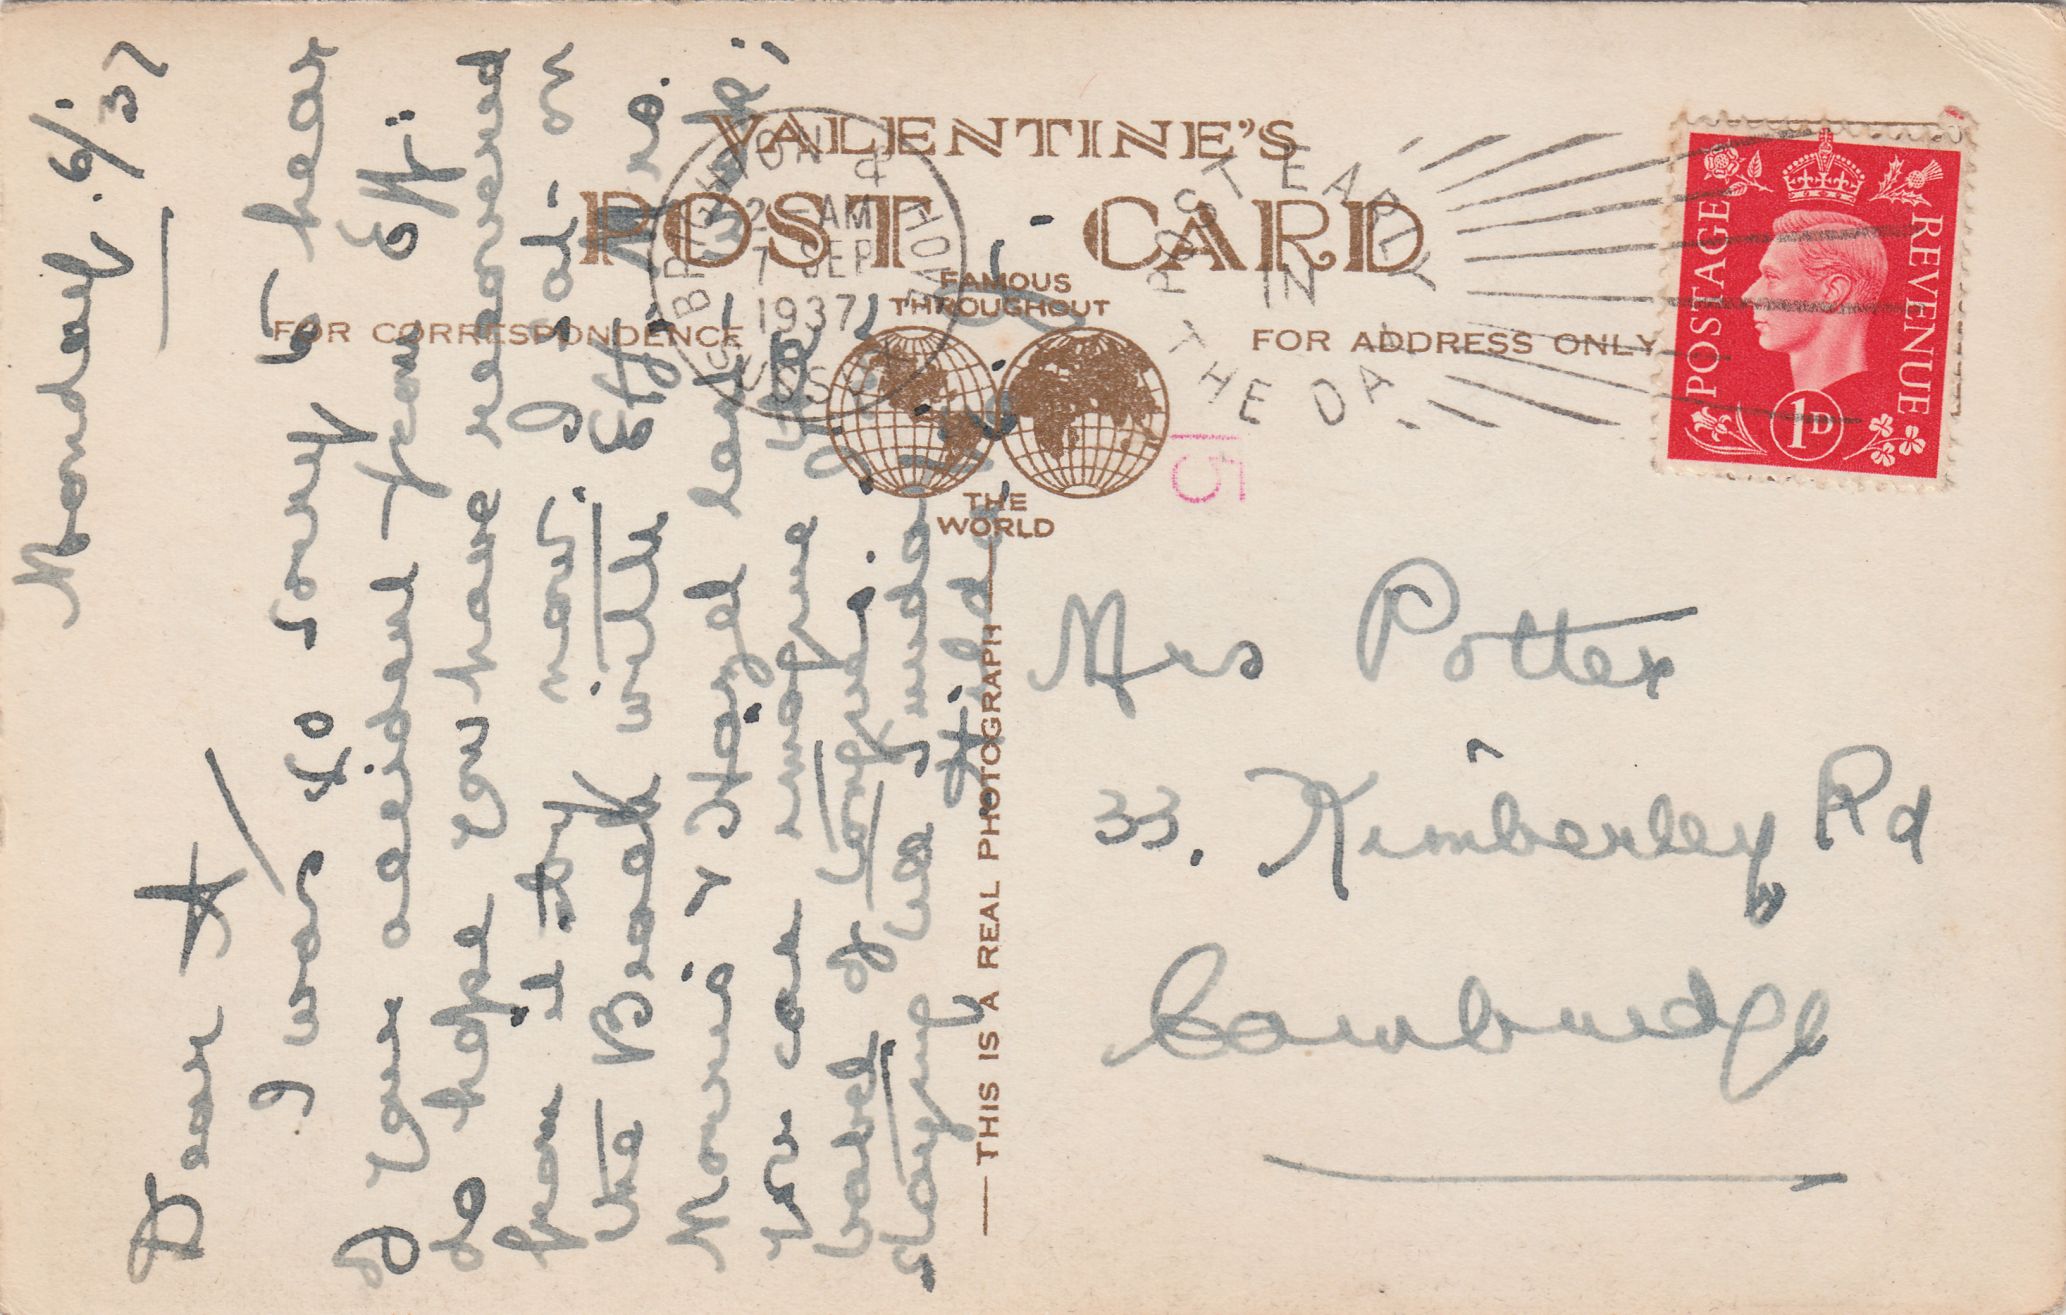 VALENTINE'S
POST CARD
FAMOUS
THROUGHOUT
THE
WORLD
FOR CORRESPONDENCE
FOR ADDRESS ONLY
THIS IS A REAL PHOTOGRAPH
BRIGHTON & HOVE
2 AM
7 SEP
1937
SUSSEX
POST EARLY
IN
THE DAY
POSTAGE
REVENUE
1D
15
Monday. 6/9/37
Dear A/
I was so sorry to hear
of your accident from EH.
do hope you have recovered
from it by now. I sat on
the Beach with EH, Mrs.
Morris & Hazel last week;
You can imagine the
babel of tongues.
staying
Hilda
Mrs Potter
33, Kimberley Rd
Cambridge